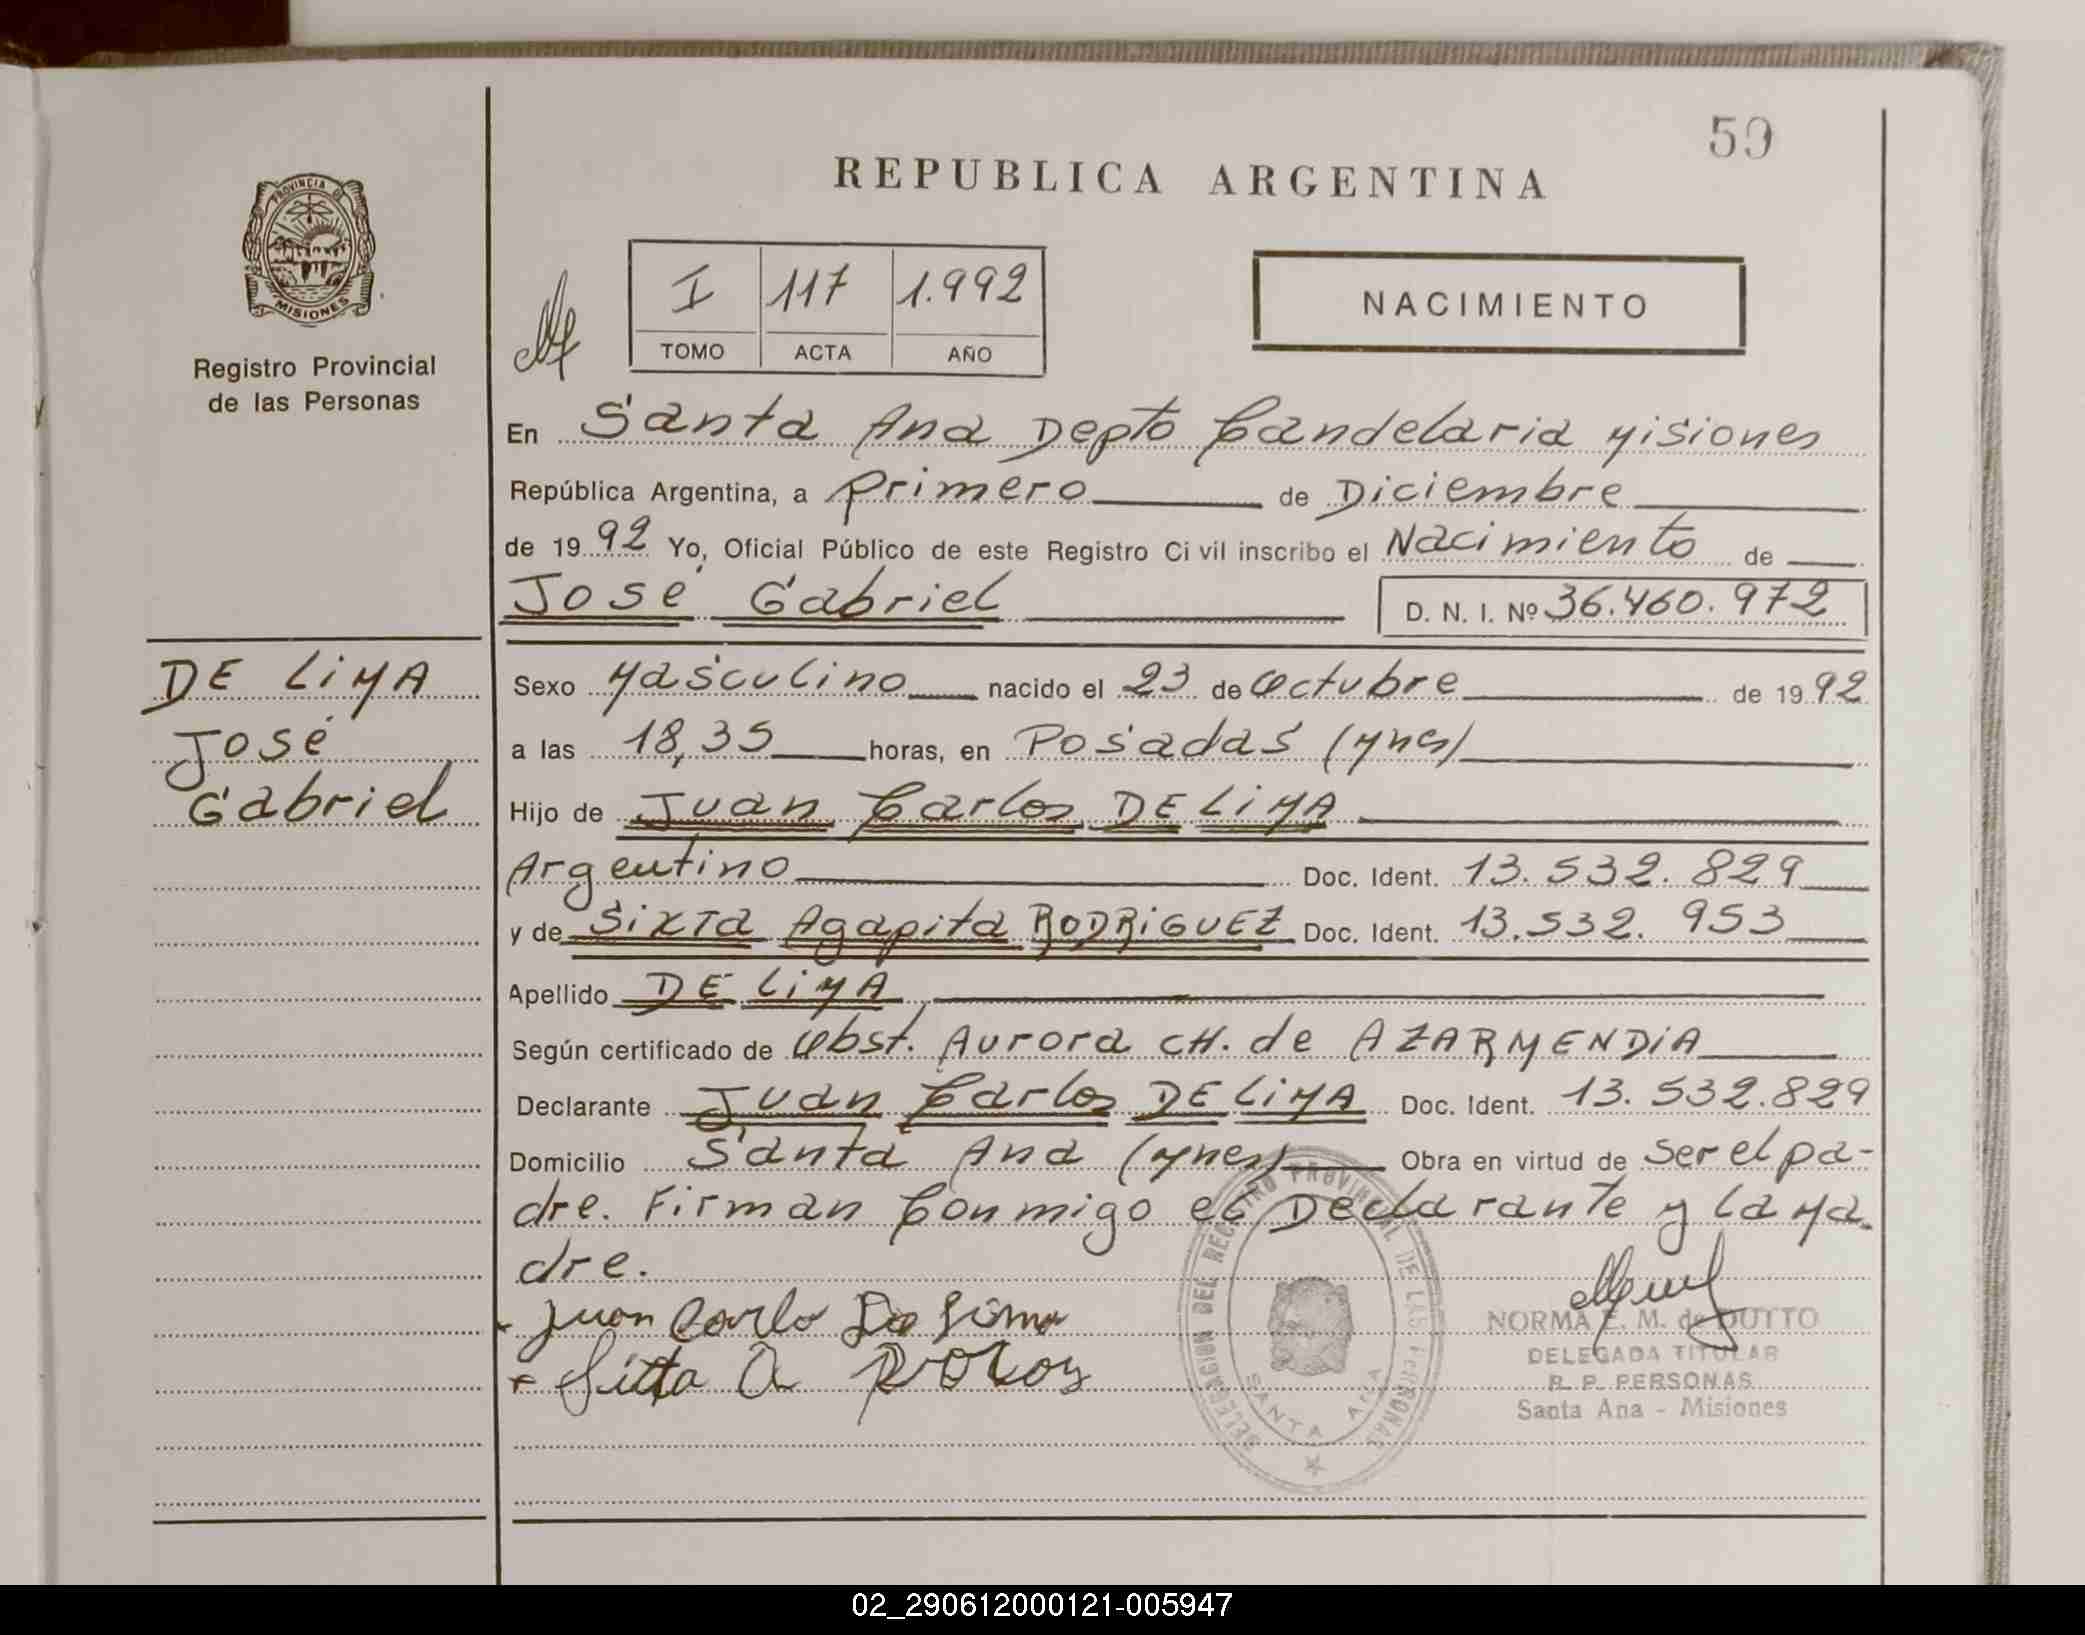 59
REPUBLICA ARGENTINA
PROVINCIA DE
MISIONES
Registro Provincial
de las Personas
I 117 1.992
TOMO ACTA AÑO
NACIMIENTO
En Santa Ana Depto Candelaria Misiones
República Argentina, a primero de Diciembre
de 1992 Yo, Oficial Público de este Registro Ci vil inscribo el Nacimiento de
José Gabriel D. N. I. Nº 36.460.972
DE LiMA
José
Gabriel
Sexo Masculino nacido el 23 de Octubre de 1992
a las 18,35 horas, en Posadas (Mnes)
Hijo de Juan Carlos DE LiMA
Argentino Doc. Ident. 13.532.829
y de Sixta Agapita RODRiGUEZ Doc. Ident. 13.532.953
Apellido DE LiMA
Según certificado de Obst. Aurora CH. de AZARMENDiA
Declarante Juan Carlos DE LiMA Doc. Ident. 13.532.829
Domicilio Santa Ana (Mnes) Obra en virtud de ser el pa-
dre. Firman Conmigo el Declarante y la Ma-
dre.
Juan Carlo De Lima
Sixta A
DELEGACION DEL REGISTRO PROVINCIAL DE LAS PERSONAS
SANTA ANA
NORMA E. M. de DUTTO
DELEGADA TITULAR
R. P. PERSONAS
Santa Ana - Misiones
02_290612000121-005947